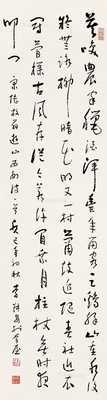 莫笑農家臘酒渾豐年留客足雞豚山重水複
疑無路柳暗花明又一村簫鼓追隨春社近衣
冠簡樸古風存從今若許閑乘月拄杖無時夜
叩門 陸放翁遊山西村詩一首 年初秋